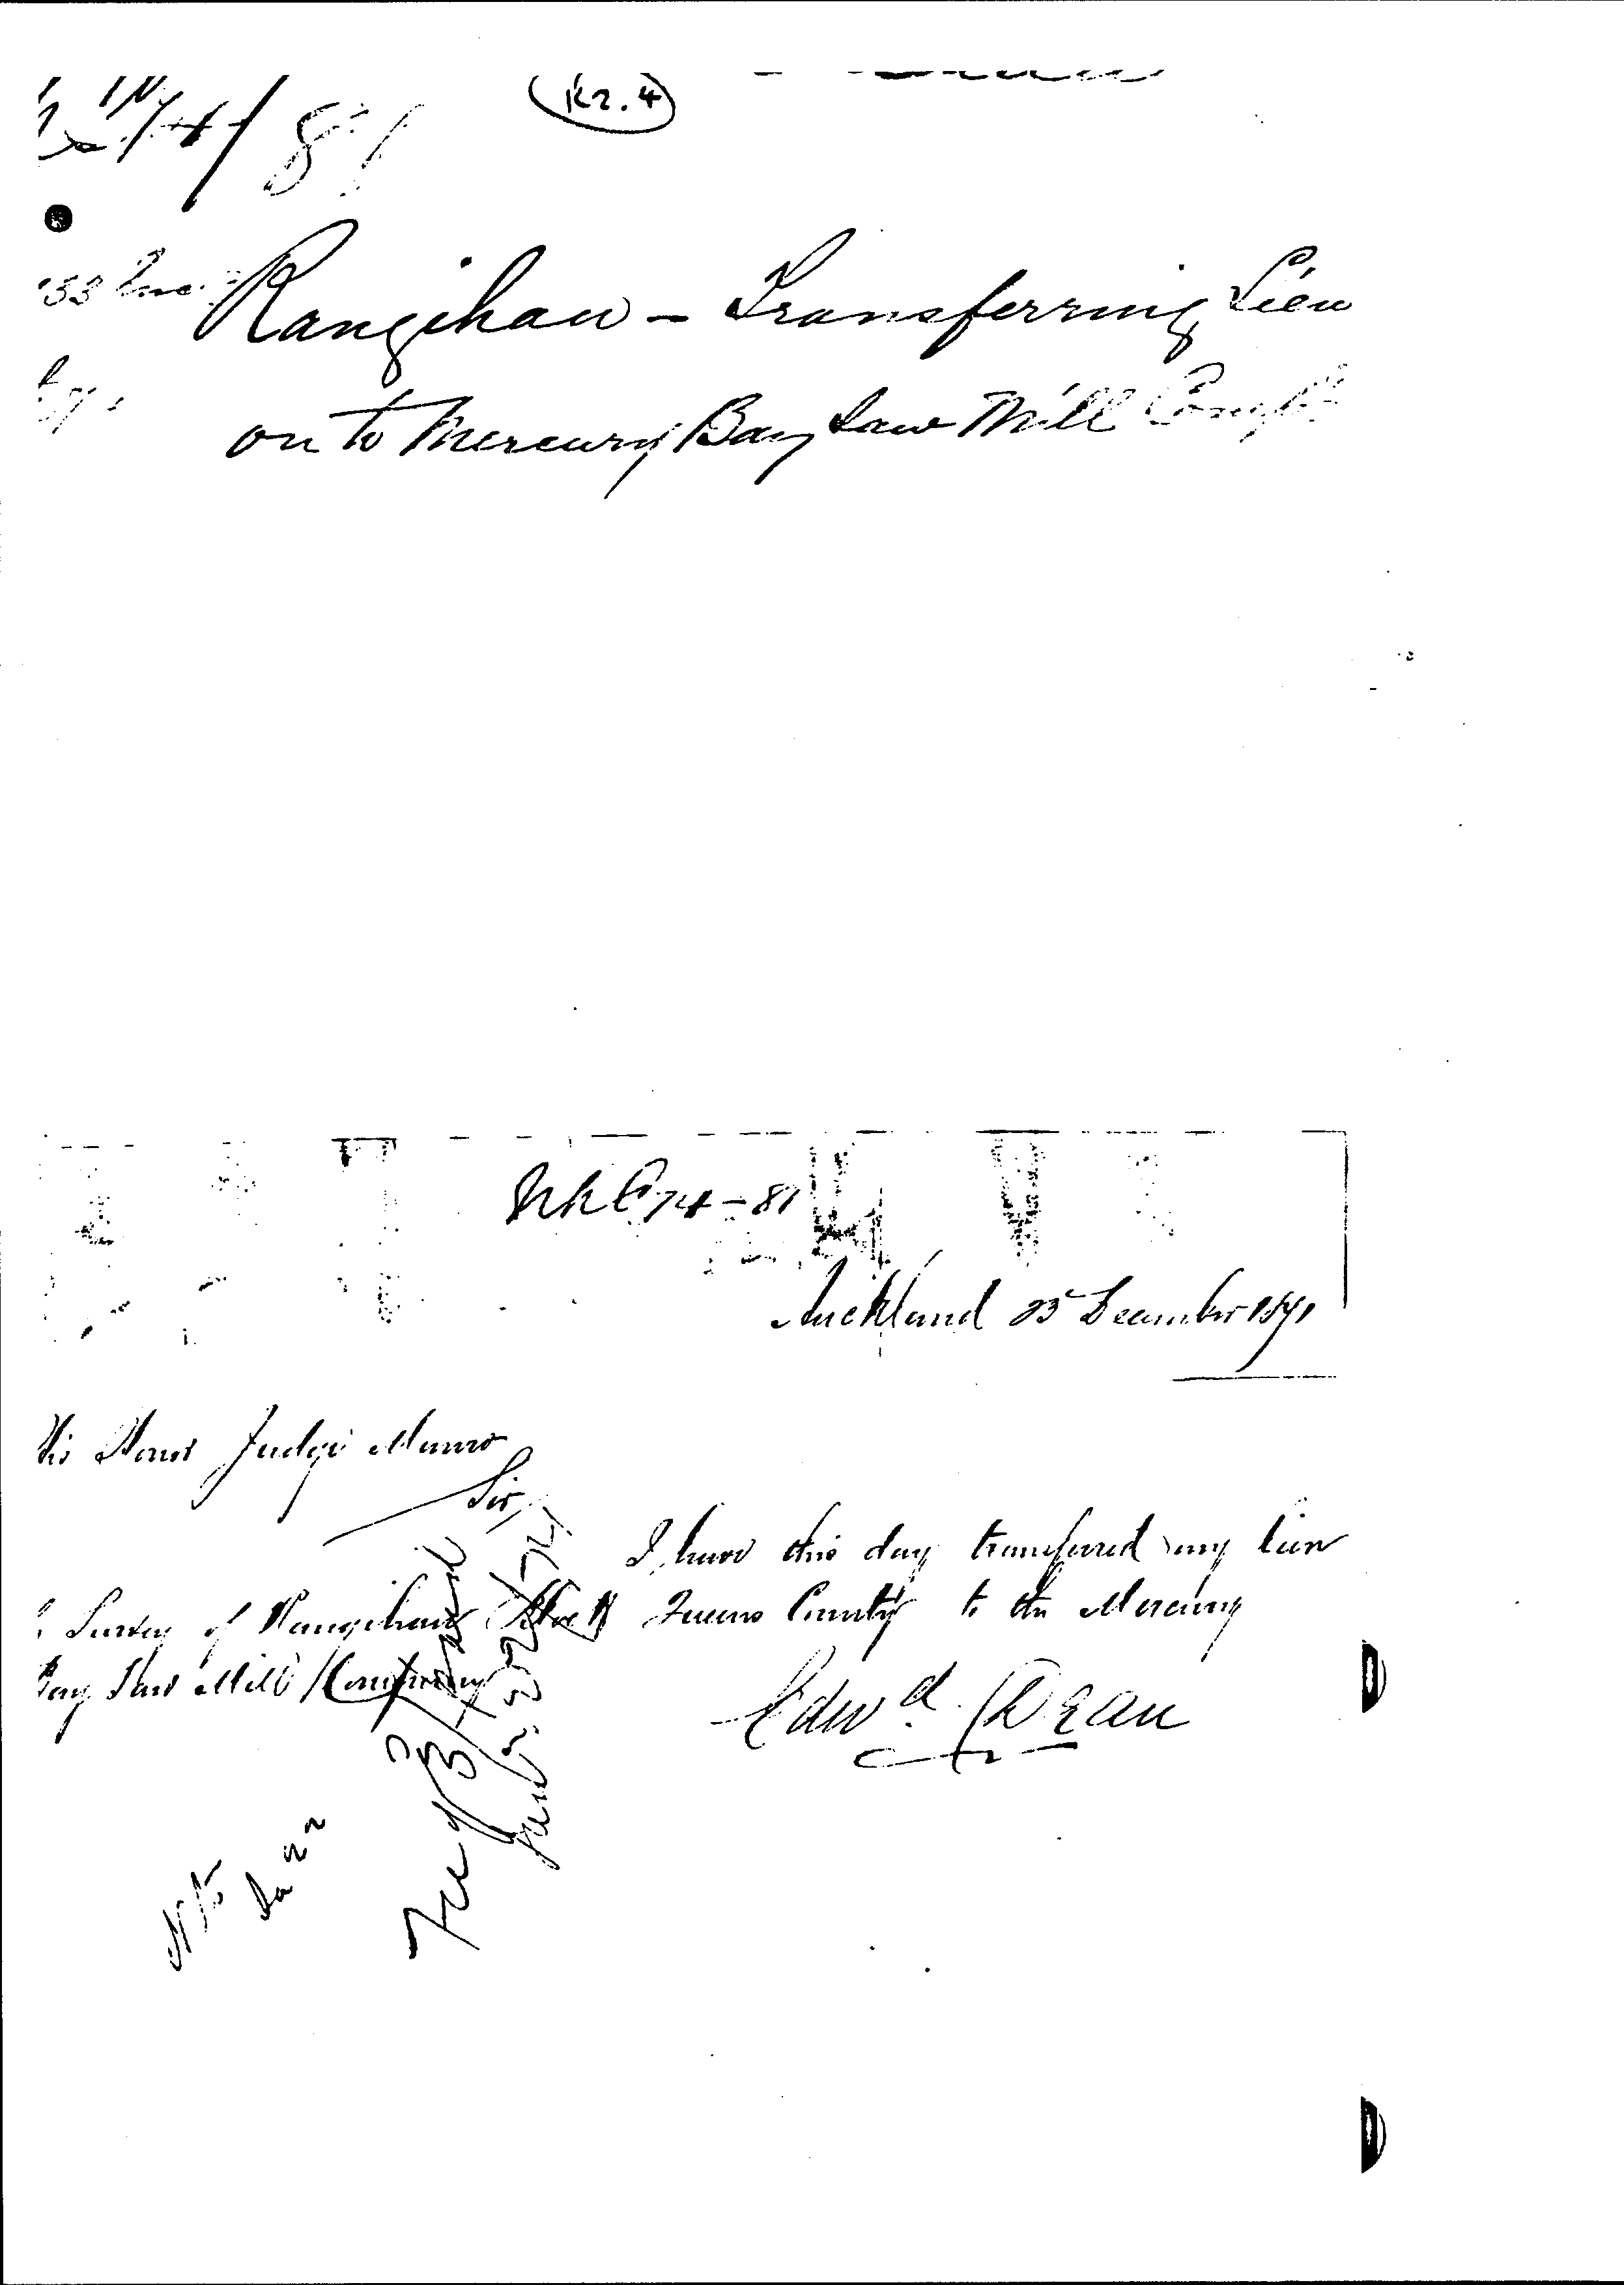 (K2.4)
81
Rangihau - Transferring Lien
on to Mercury Bay Saw Mill Compy
74-81
Auckland 23 December 1871
His Honor Judge Munro
Sir,
I have this day transferred my lien
Survey of Rangihau Block Queens County to the Mercury
Bay Saw Mill Company
Edwd Dean